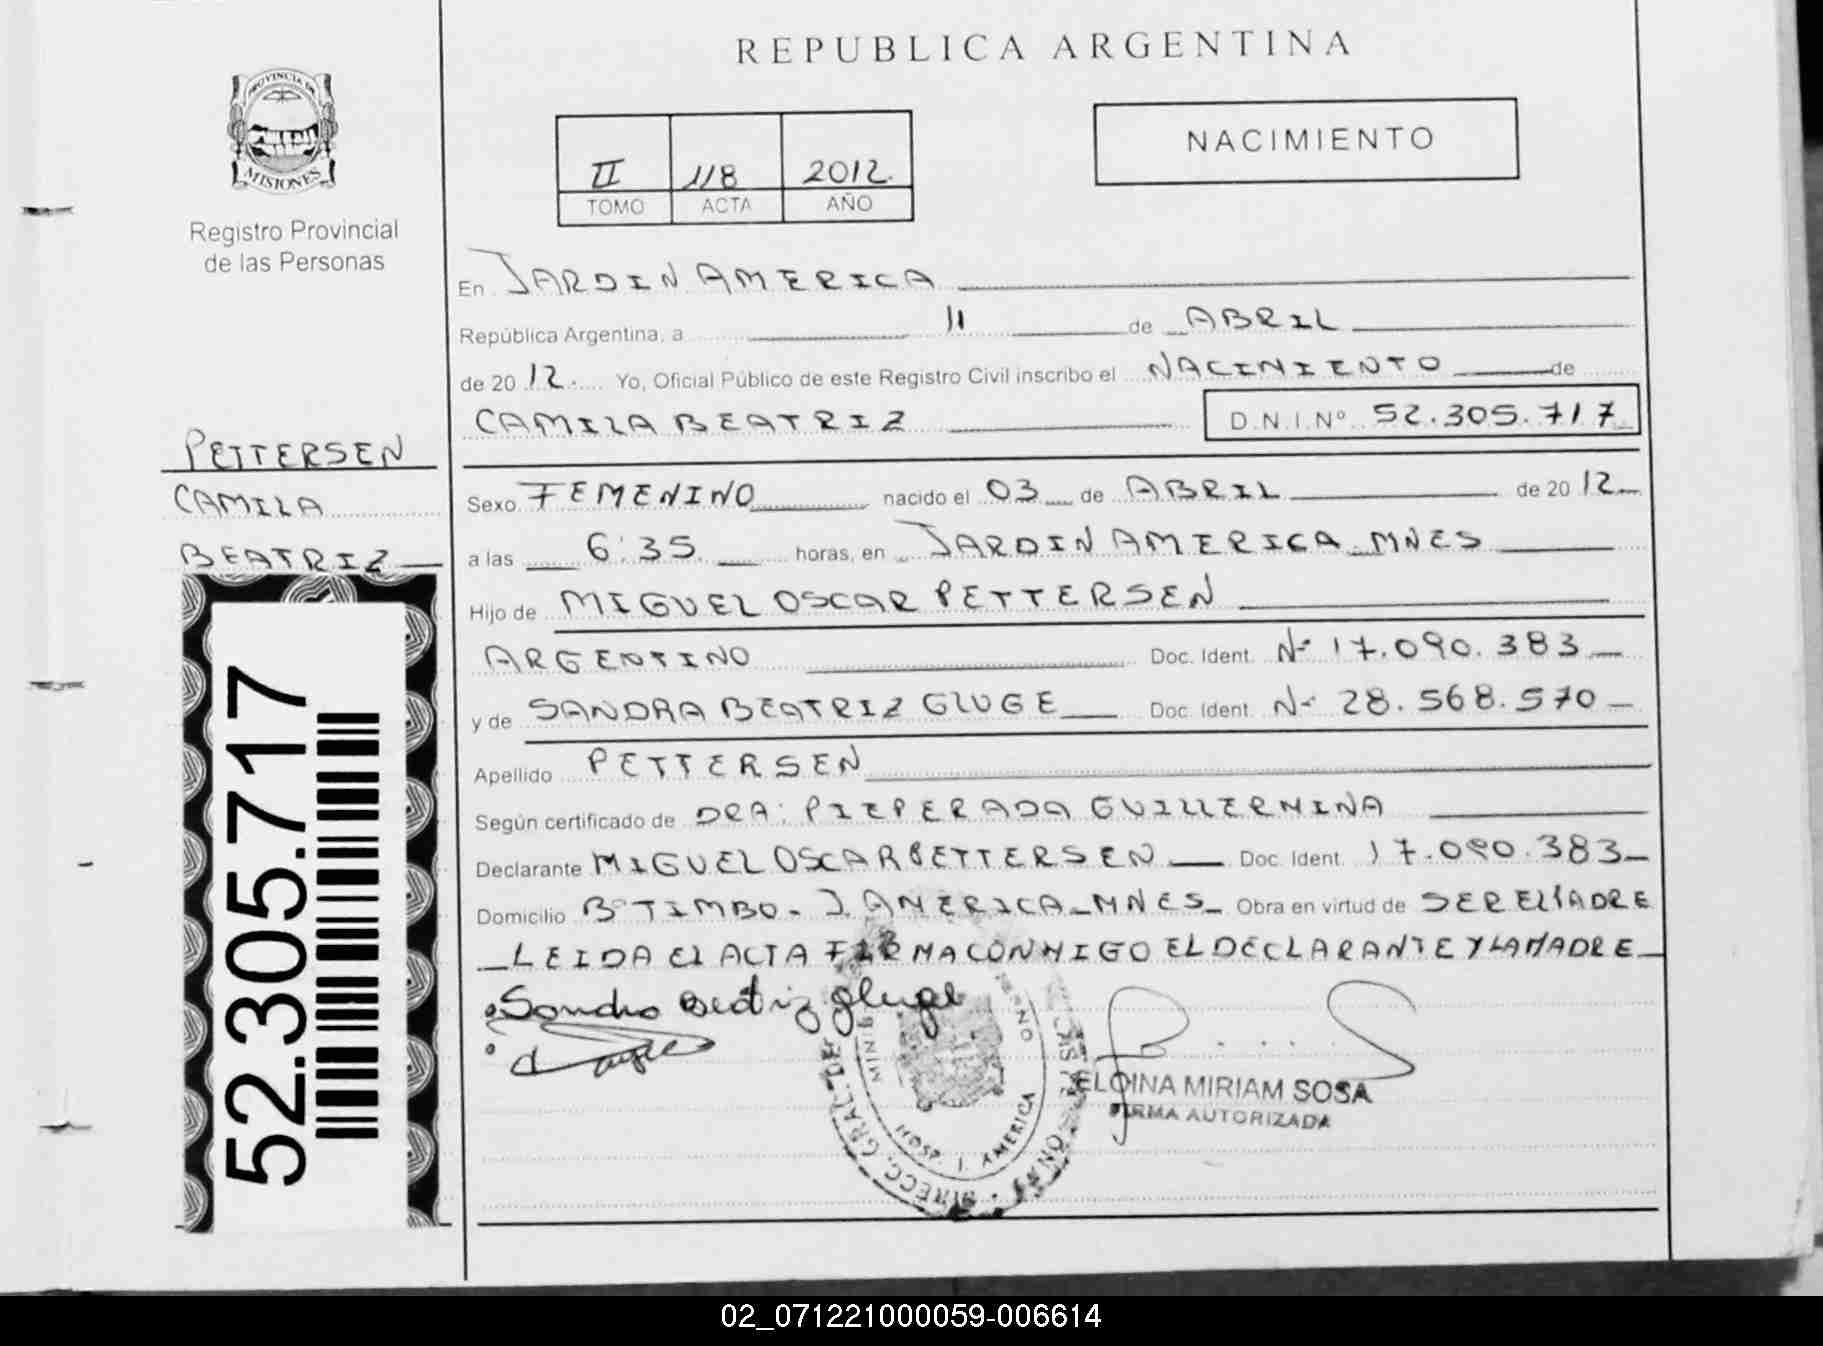 REPUBLICA ARGENTINA
PROVINCIA DE
MISIONES
Registro Provincial
de las Personas
II 118 2012.
TOMO ACTA AÑO
NACIMIENTO
En JARDIN AMERICA
República Argentina, a 11 de ABRIL
de 20 12. Yo, Oficial Público de este Registro Civil inscribo el NACIMIENTO de
CAMILA BEATRIZ D.N.I.Nº 52.305.717
PETTERSEN
CAMILA
BEATRIZ
52.305.717
Sexo FEMENINO nacido el 03 de ABRIL de 20 12
a las 6:35 horas, en JARDIN AMERICA - MNES
Hijo de MIGUEL OSCAR PETTERSEN
ARGENTINO Doc. Ident. Nº 17.090.383
y de SANDRA BEATRIZ GLUGE Doc. Ident. Nº 28.568.570
Apellido PETTERSEN
Según certificado de DRA: PIEPER ADA GUILLERMINA
Declarante MIGUEL OSCAR PETTERSEN Doc. Ident. 17.090.383
Domicilio Bº TIMBO - J. AMERICA - MNES - Obra en virtud de SER EL PADRE
LEIDA EL ACTA FIRMA CONMIGO EL DECLARANTE Y LA MADRE
Sandra Beatriz Gluge
DIRECC. GRAL. DE
J. AMERICA
ELOINA MIRIAM SOSA
FIRMA AUTORIZADA
02_071221000059-006614